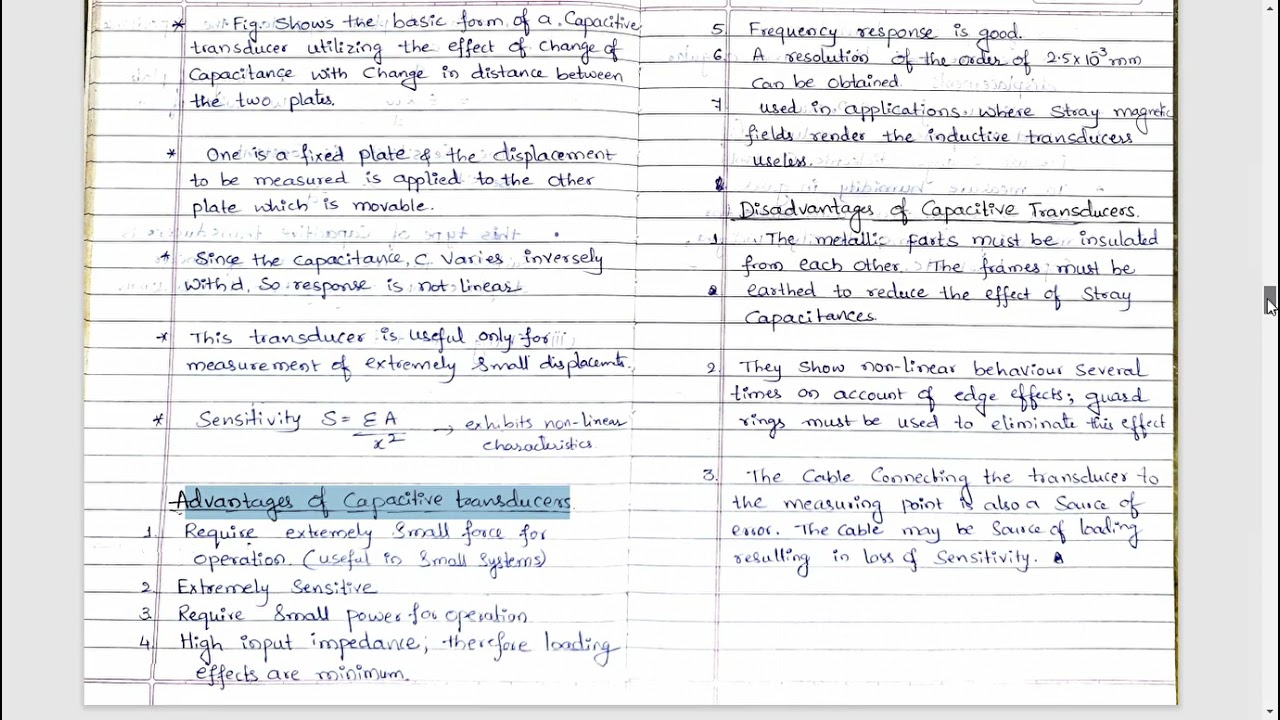 * Fig. Shows the basic form of a Capacitive
transducer utilizing the effect of Change of
Capacitance with Change in distance between
the two plates.
* One is a fixed plate & the displacement
to be measured is applied to the other
plate which is movable.
* Since the capacitance, C varies inversely
with d, so response is not linear.
* This transducer is useful only for
measurement of extremely small displacemts.
* Sensitivity S = εA / x² → exhibits non-linear
characteristics.
Advantages of Capacitive transducers.
1. Require extremely small force for
operation. (useful in small systems)
2. Extremely Sensitive
3. Require small power for operation
4. High input impedance; therefore loading
effects are minimum.
5. Frequency response is good.
6. A resolution of the order of 2.5x10⁻³ mm
can be obtained.
7. used in applications where Stray magnetic
fields render the inductive transducers
useless.
Disadvantages of Capacitive Transducers.
1. The metallic parts must be insulated
from each other. The frames must be
earthed to reduce the effect of Stray
Capacitances.
2. They show non-linear behaviour several
times on account of edge effects; guard
rings must be used to eliminate this effect
3. The Cable Connecting the transducer to
the measuring point is also a Source of
error. The cable may be source of loading
resulting in loss of Sensitivity.